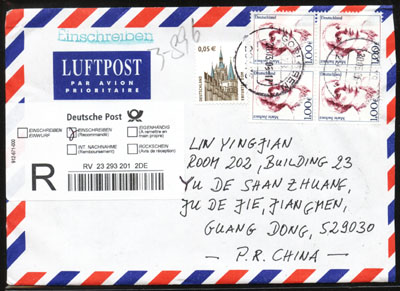 Einschreiben
3.896
LUFTPOST
PAR AVION
PRIORITAIRE
0,05 €
DEUTSCHLAND
Deutschland
Deutschland
100
100
Deutschland
Deutschland
100
100
Deutsche Post
EINSCHREIBEN
EINWURF
EINSCHREIBEN
(Recommandé)
EIGENHÄNDIG
(A remettre en
main propre)
INT. NACHNAHME
(Remboursement)
RÜCKSCHEIN
(Avis de réception)
R
RV 23 293 201 2DE
LIN YINGJIAN
ROOM 202, BUILDING 23
YU DE SHAN ZHUANG,
YU DE JIE, JIANGMEN,
GUANG DONG, 529030
- P.R. CHINA -